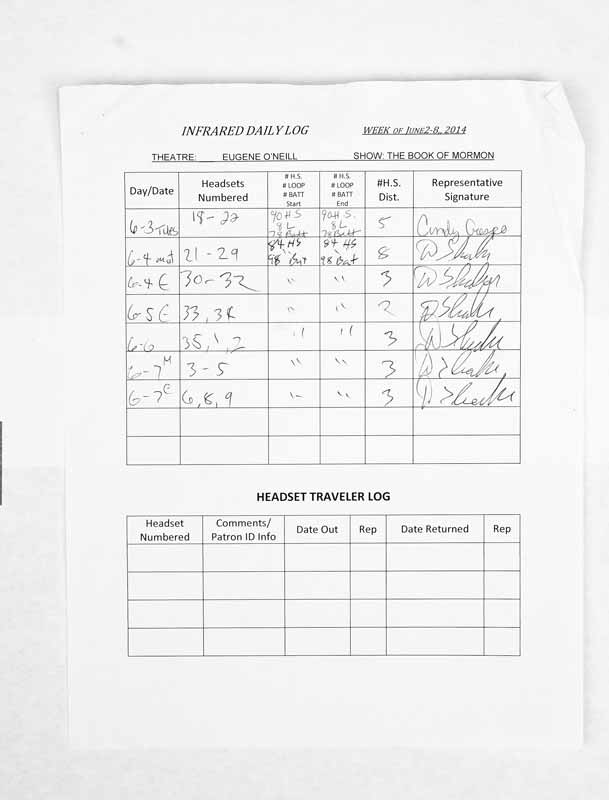 INFRARED DAILY LOG WEEK OF JUNE2-8, 2014
THEATRE: EUGENE O'NEILL SHOW: THE BOOK OF MORMON
Day/Date Headsets Numbered # H.S. # LOOP # BATT Start # H.S. # LOOP # BATT End #H.S. Dist. Representative Signature
6-3 Tues 18-22 90 HS 8L 78 Batt 90 H S. 8L 78 Batt 5 Cindy
6-4 mat 21-29 84 HS " 98 Bat 84 HS 98 Bat 8
6-4 E 30-32 " " 3
6-5 E 33, 34 " " 2
6-6 35, 1, 2 " " 3
6-7 M 3-5 " " 3
6-7 E 6, 8, 9 " " 3
HEADSET TRAVELER LOG
Headset Numbered Comments/ Patron ID Info Date Out Rep Date Returned Rep